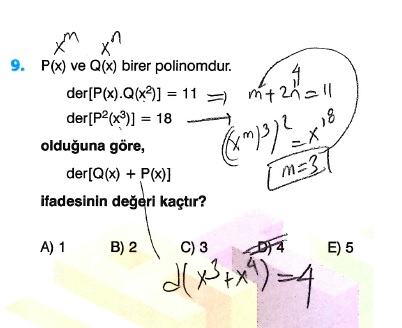 xᵐ xⁿ
9. P(x) ve Q(x) birer polinomdur.
der[P(x).Q(x²)] = 11 ⇒ m+2n=11
4
der[P²(x³)] = 18 → (xᵐ)³)² = x¹⁸
olduğuna göre, m=3
der[Q(x) + P(x)]
ifadesinin değeri kaçtır?
A) 1 B) 2 C) 3 D) 4 E) 5
d(x³+x⁴)=4